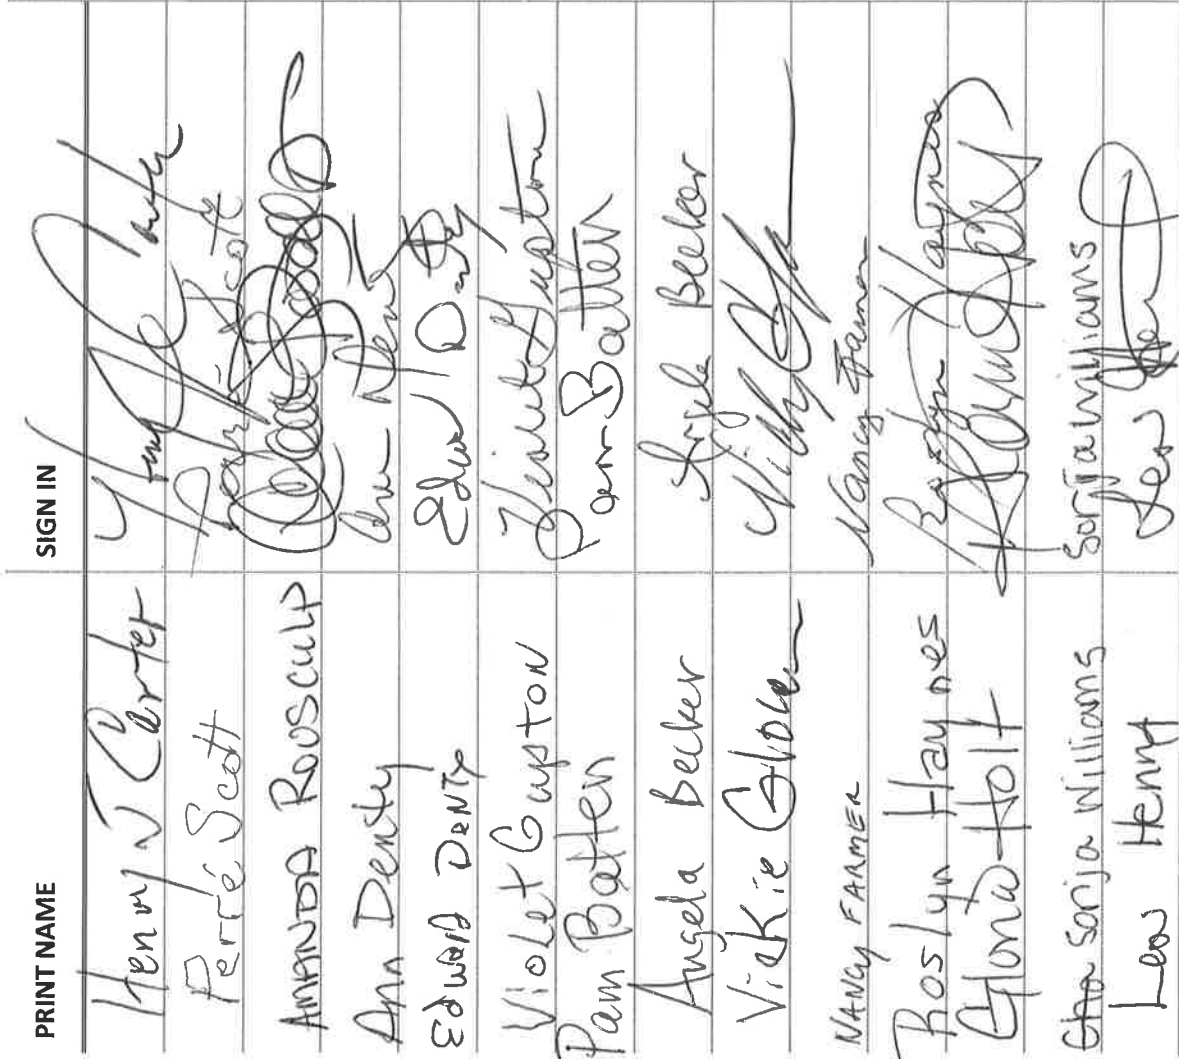 PRINT NAME SIGN IN
Henry J Carter
Perré Scott
AMANDA ROUSCULP
Ann Denty Ann Denty
Edward Denty Edward Denty
Violet Guyton Violet Guyton
Pam Batten Pam Batten
Angela Becker Angela Becker
Vickie Glover
NANCY FARMER Nancy Farmer
Roslyn Haynes Roslyn Haynes
Holt
Sonja Williams Sonja Williams
Leon Henry Leon